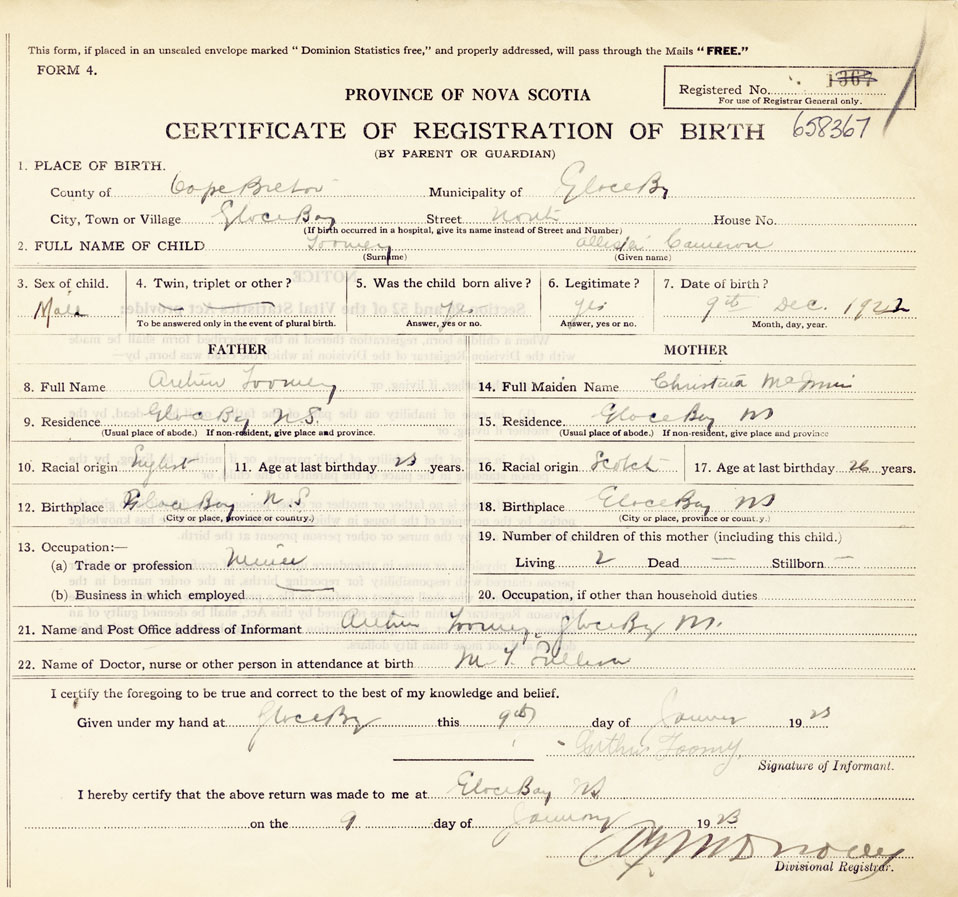 This form, if placed in an unsealed envelope marked “ Dominion Statistics free,” and properly addressed, will pass through the Mails “ FREE.”
FORM 4.
Registered No. 1367
For use of Registrar General only.
PROVINCE OF NOVA SCOTIA
CERTIFICATE OF REGISTRATION OF BIRTH 658367
(BY PARENT OR GUARDIAN)
1. PLACE OF BIRTH.
County of Cape Breton Municipality of Glace Bay
City, Town or Village Glace Bay Street North House No.
(If birth occurred in a hospital, give its name instead of Street and Number)
2. FULL NAME OF CHILD Toomey Cameron
(Surname) (Given name)
3. Sex of child. 4. Twin, triplet or other? 5. Was the child born alive? 6. Legitimate? 7. Date of birth?
Male Yes Yes 9th Dec. 1922
To be answered only in the event of plural birth. Answer, yes or no. Answer, yes or no. Month, day, year.
FATHER MOTHER
8. Full Name Arthur Toomey 14. Full Maiden Name Christina
9. Residence Glace Bay N.S. 15. Residence Glace Bay NS
(Usual place of abode.) If non-resident, give place and province. (Usual place of abode.) If non-resident, give place and province
10. Racial origin English 11. Age at last birthday 23 years. 16. Racial origin Scotch 17. Age at last birthday 26 years.
12. Birthplace Glace Bay N.S 18. Birthplace Glace Bay NS
(City or place, province or country.) (City or place, province or country.)
13. Occupation:— 19. Number of children of this mother (including this child.)
(a) Trade or profession Miner Living 2 Dead — Stillborn —
(b) Business in which employed 20. Occupation, if other than household duties
21. Name and Post Office address of Informant Arthur Toomey, Glace Bay NS.
22. Name of Doctor, nurse or other person in attendance at birth M. T. Sullivan
I certify the foregoing to be true and correct to the best of my knowledge and belief.
Given under my hand at Glace Bay this 9th day of January 1923
Arthur Toomey
Signature of Informant.
I hereby certify that the above return was made to me at Glace Bay NS
on the 9 day of January 1923
Divisional Registrar.